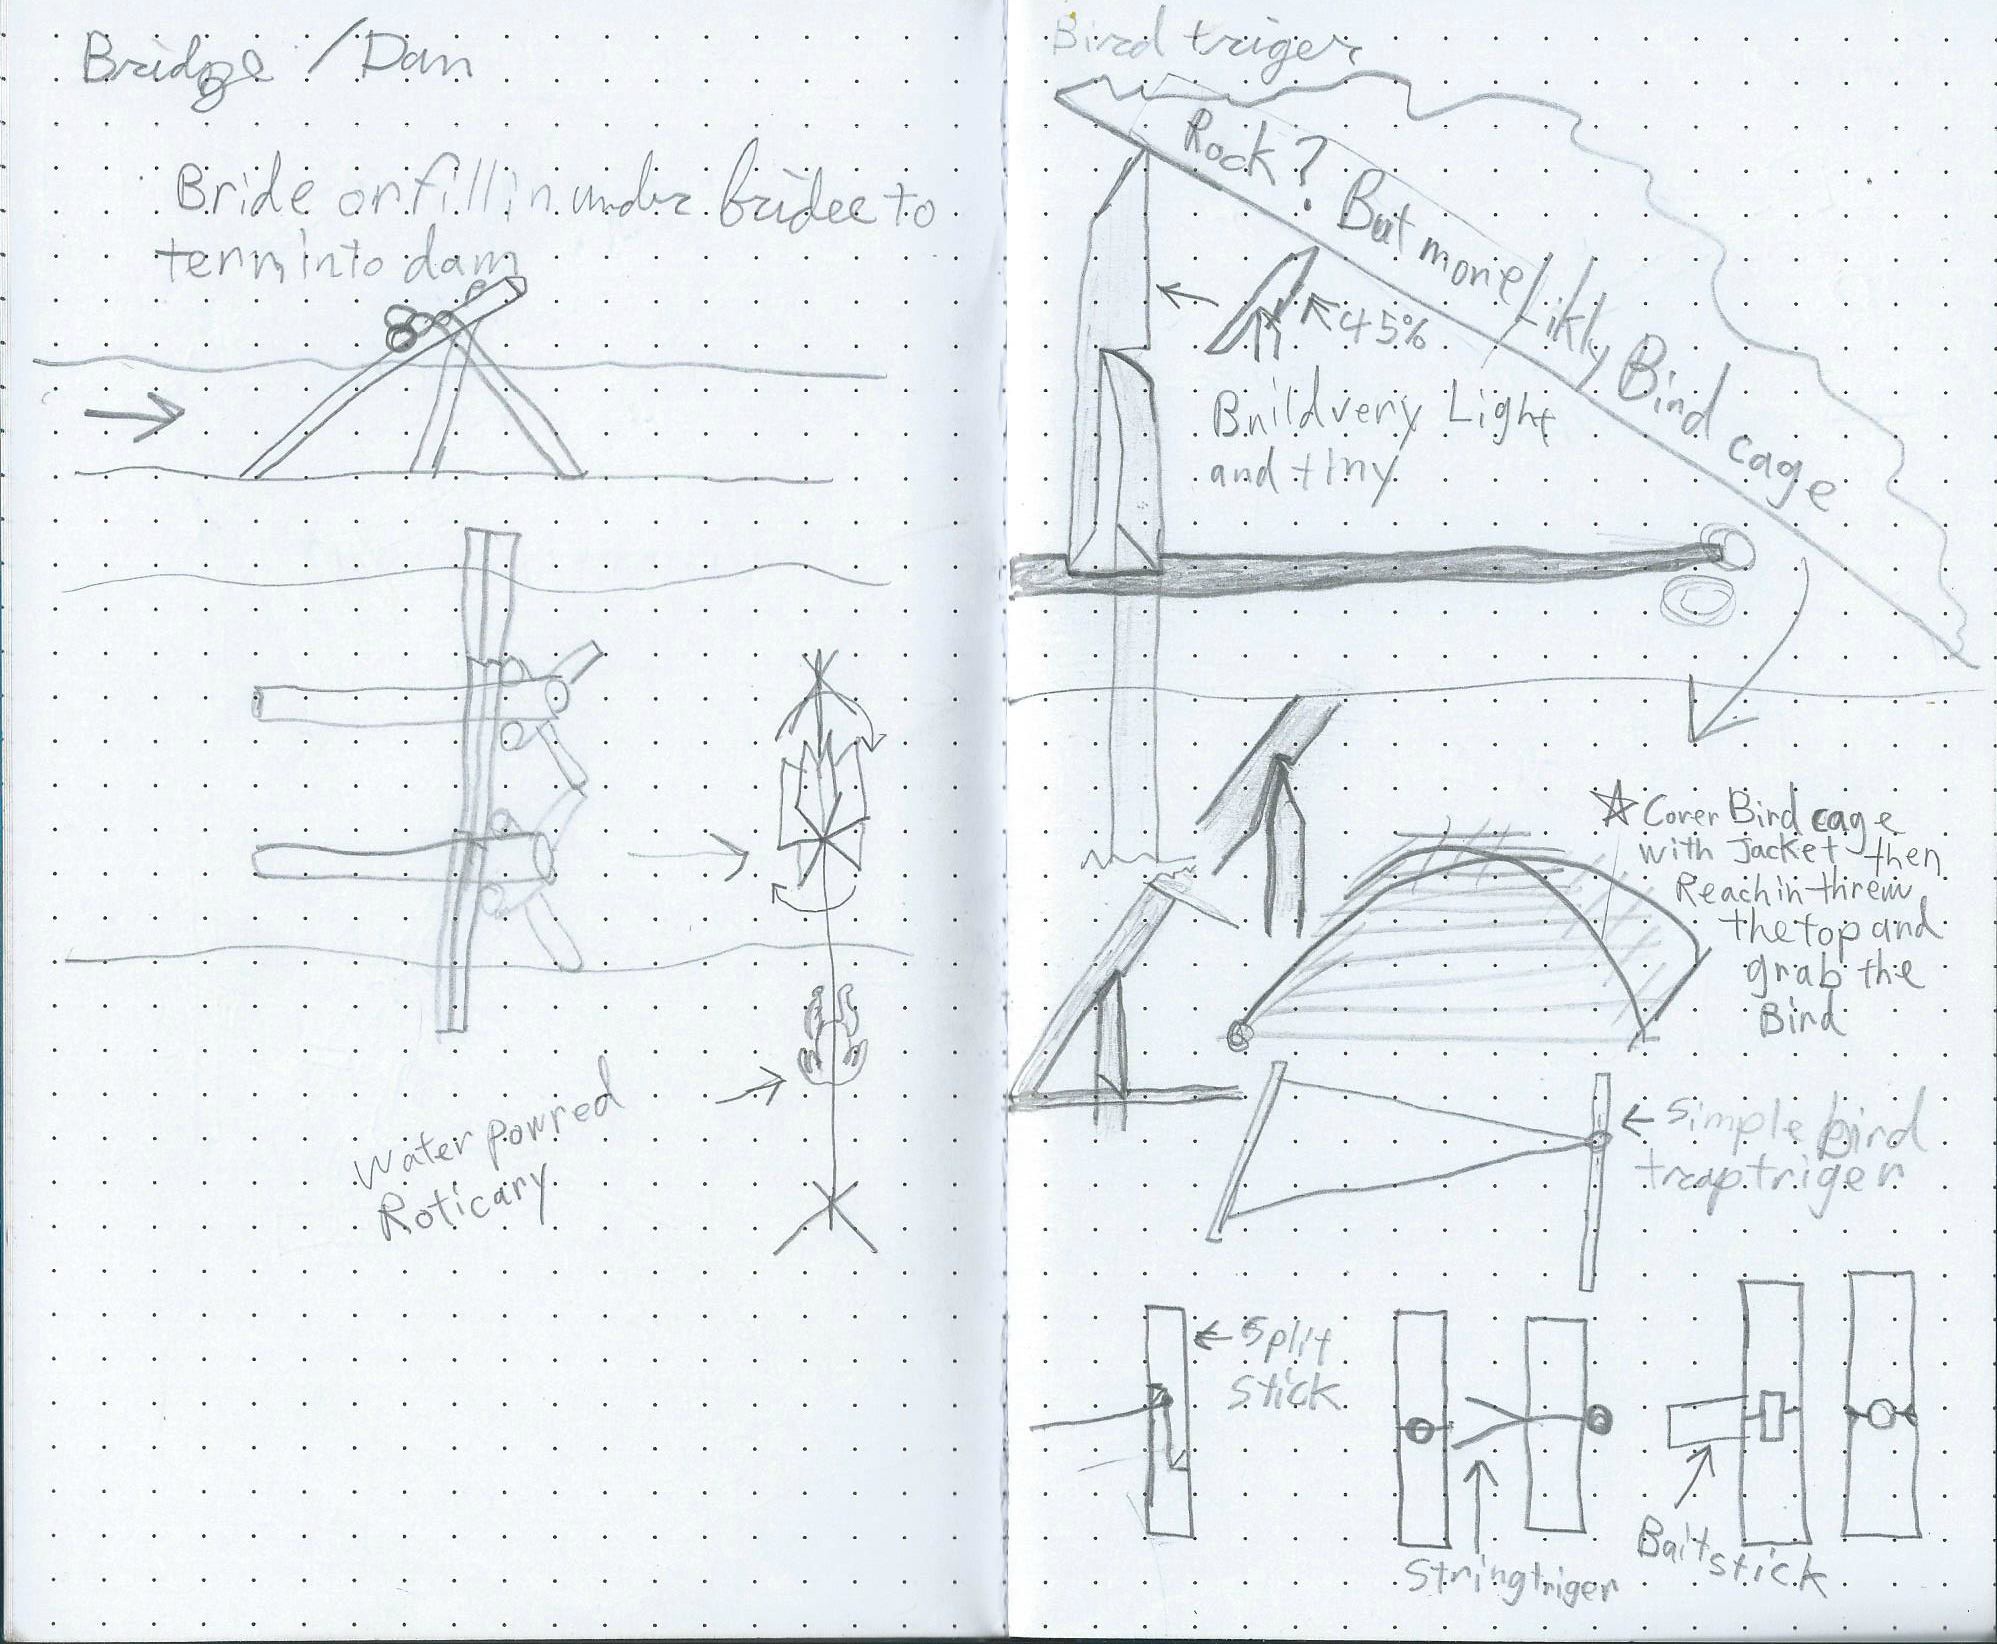 Bridge / Dam
Bride or fill in under bridee to
term into dam
Water powred
Roticary
Bird triger
Rock? But more Likly Bird cage
45%
Build very Light
and tiny
☆ Cover Bird cage
with Jacket then
Reach in threw
the top and
grab the
Bird
Simple bird
trap triger
Split
Stick
String triger
Bait stick